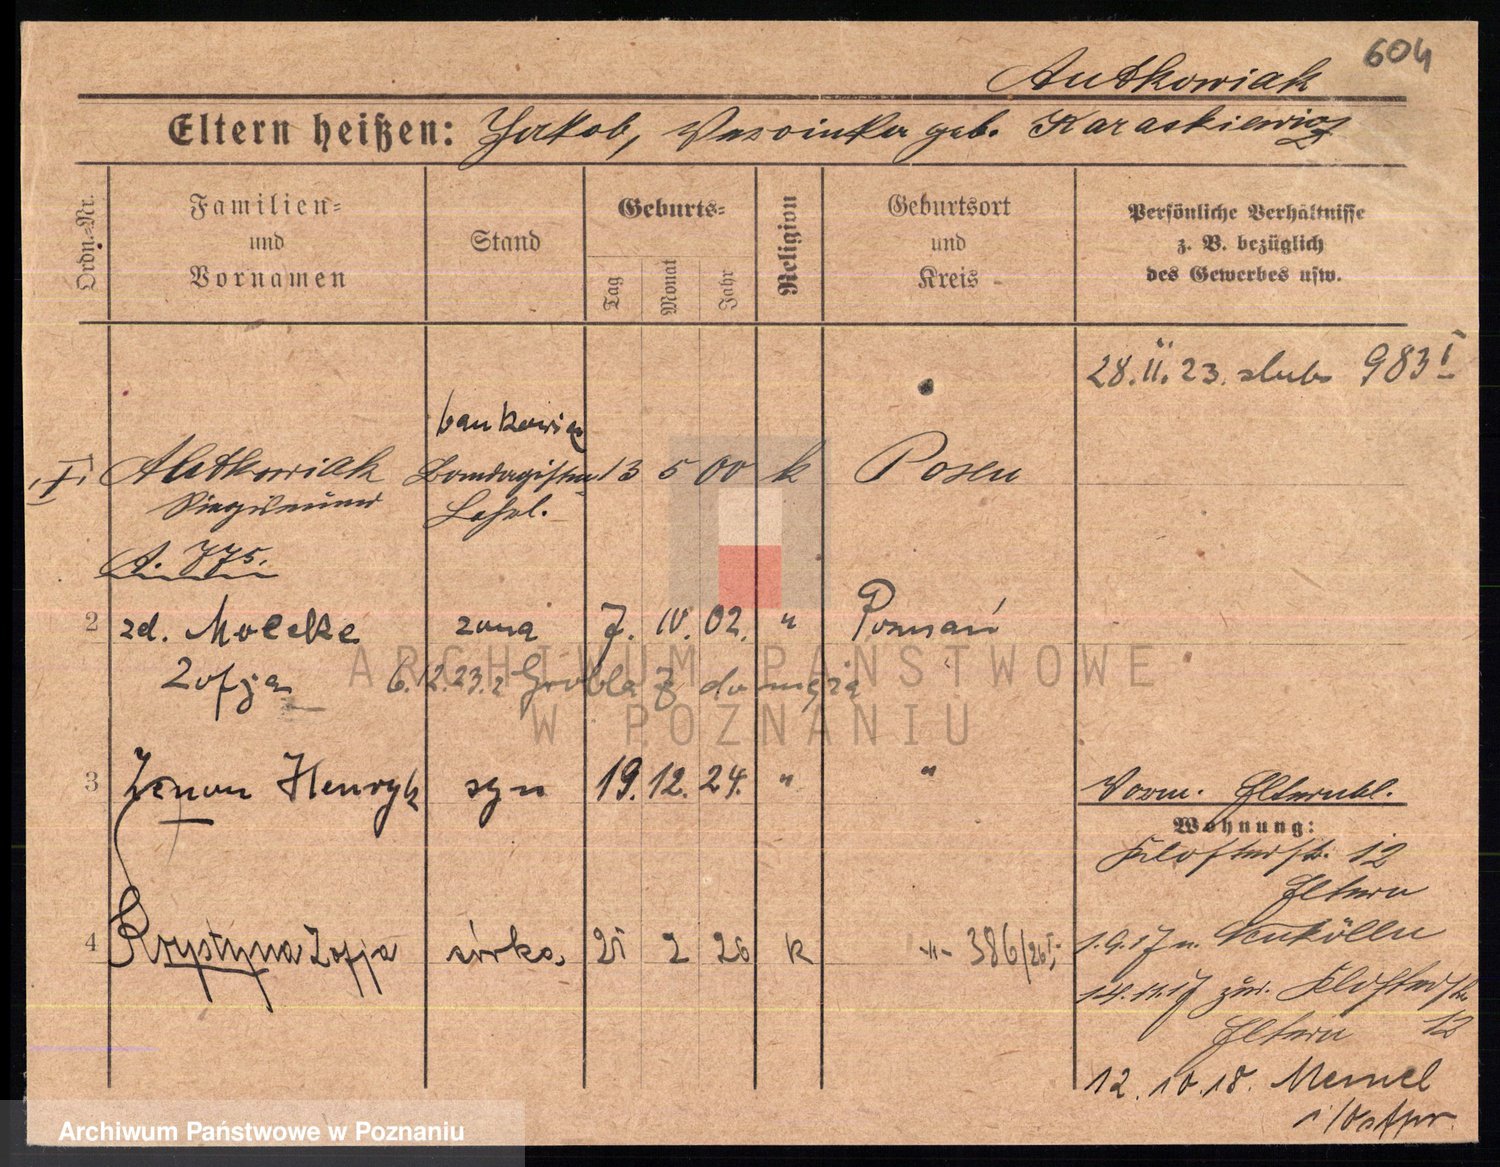 604
Autkowiak
Eltern heißen: Jakob, geb. Karaskiewicz
Ordn.-Nr.
Familien=
und
Vornamen
Stand
Geburts=
Tag
Monat
Jahr
Religion
Geburtsort
und
Kreis
Persönliche Verhältnisse
z. B. bezüglich
des Gewerbes usw.
28. II. 23. slub 983 I
bankowiec
I Autkowiak 13 5 00 k Posen
Siegismund Lehrl.
A. 775.
2 zd. żona 7. IV. 02. " Poznań
Zofja 6.12.23. z Grobla 7 do męża
3 Zenon Henryk syn 19. 12. 24. " "
Vorm. Elternbl.
Wohnung:
Klosterstr. 12
Eltern
4 Krystyna Zofja córka 21 2 26 k -"- 386/26 I
1.9.17 n. Neukölln
14.11.17 zur. Klosterstr.
Eltern 12
12.10.18. Memel
i/Ostpr.
ARCHIWUM PAŃSTWOWE
W POZNANIU
Archiwum Państwowe w Poznaniu